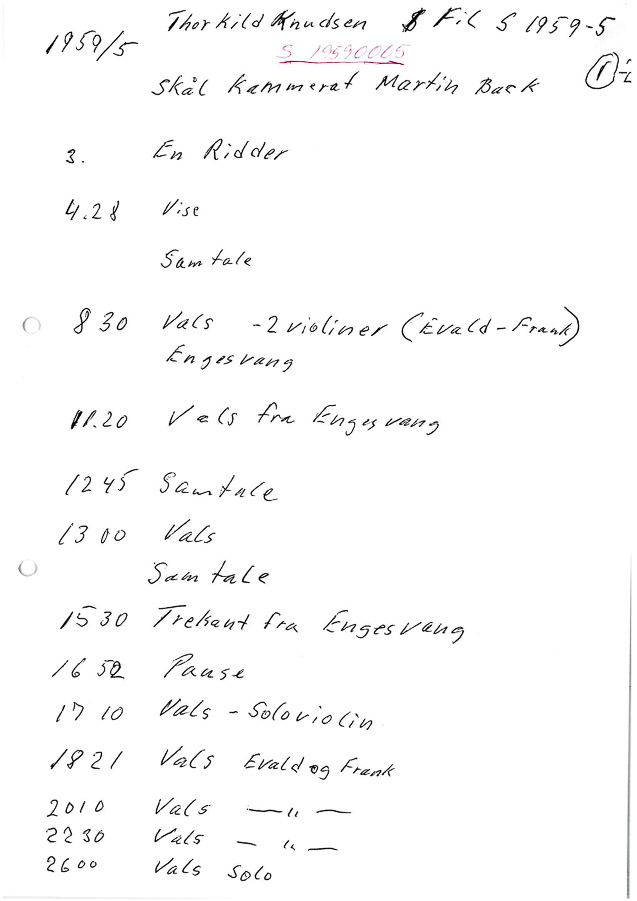 1959/5 Thorkild Knudsen Fil S 1959-5
S 19590005
Skål Kammerat Martin Back
1-2
3. En Ridder
4.28 Vise
Samtale
8 30 Vals - 2 violiner (Evald - Frank)
Engesvang
11.20 Vals fra Engesvang
12 45 Samtale
13 00 Vals
Samtale
15 30 Trekant fra Engesvang
16 52 Pause
17 10 Vals - Soloviolin
18 21 Vals Evald og Frank
2010 Vals — " —
22 30 Vals — " —
26 00 Vals Solo